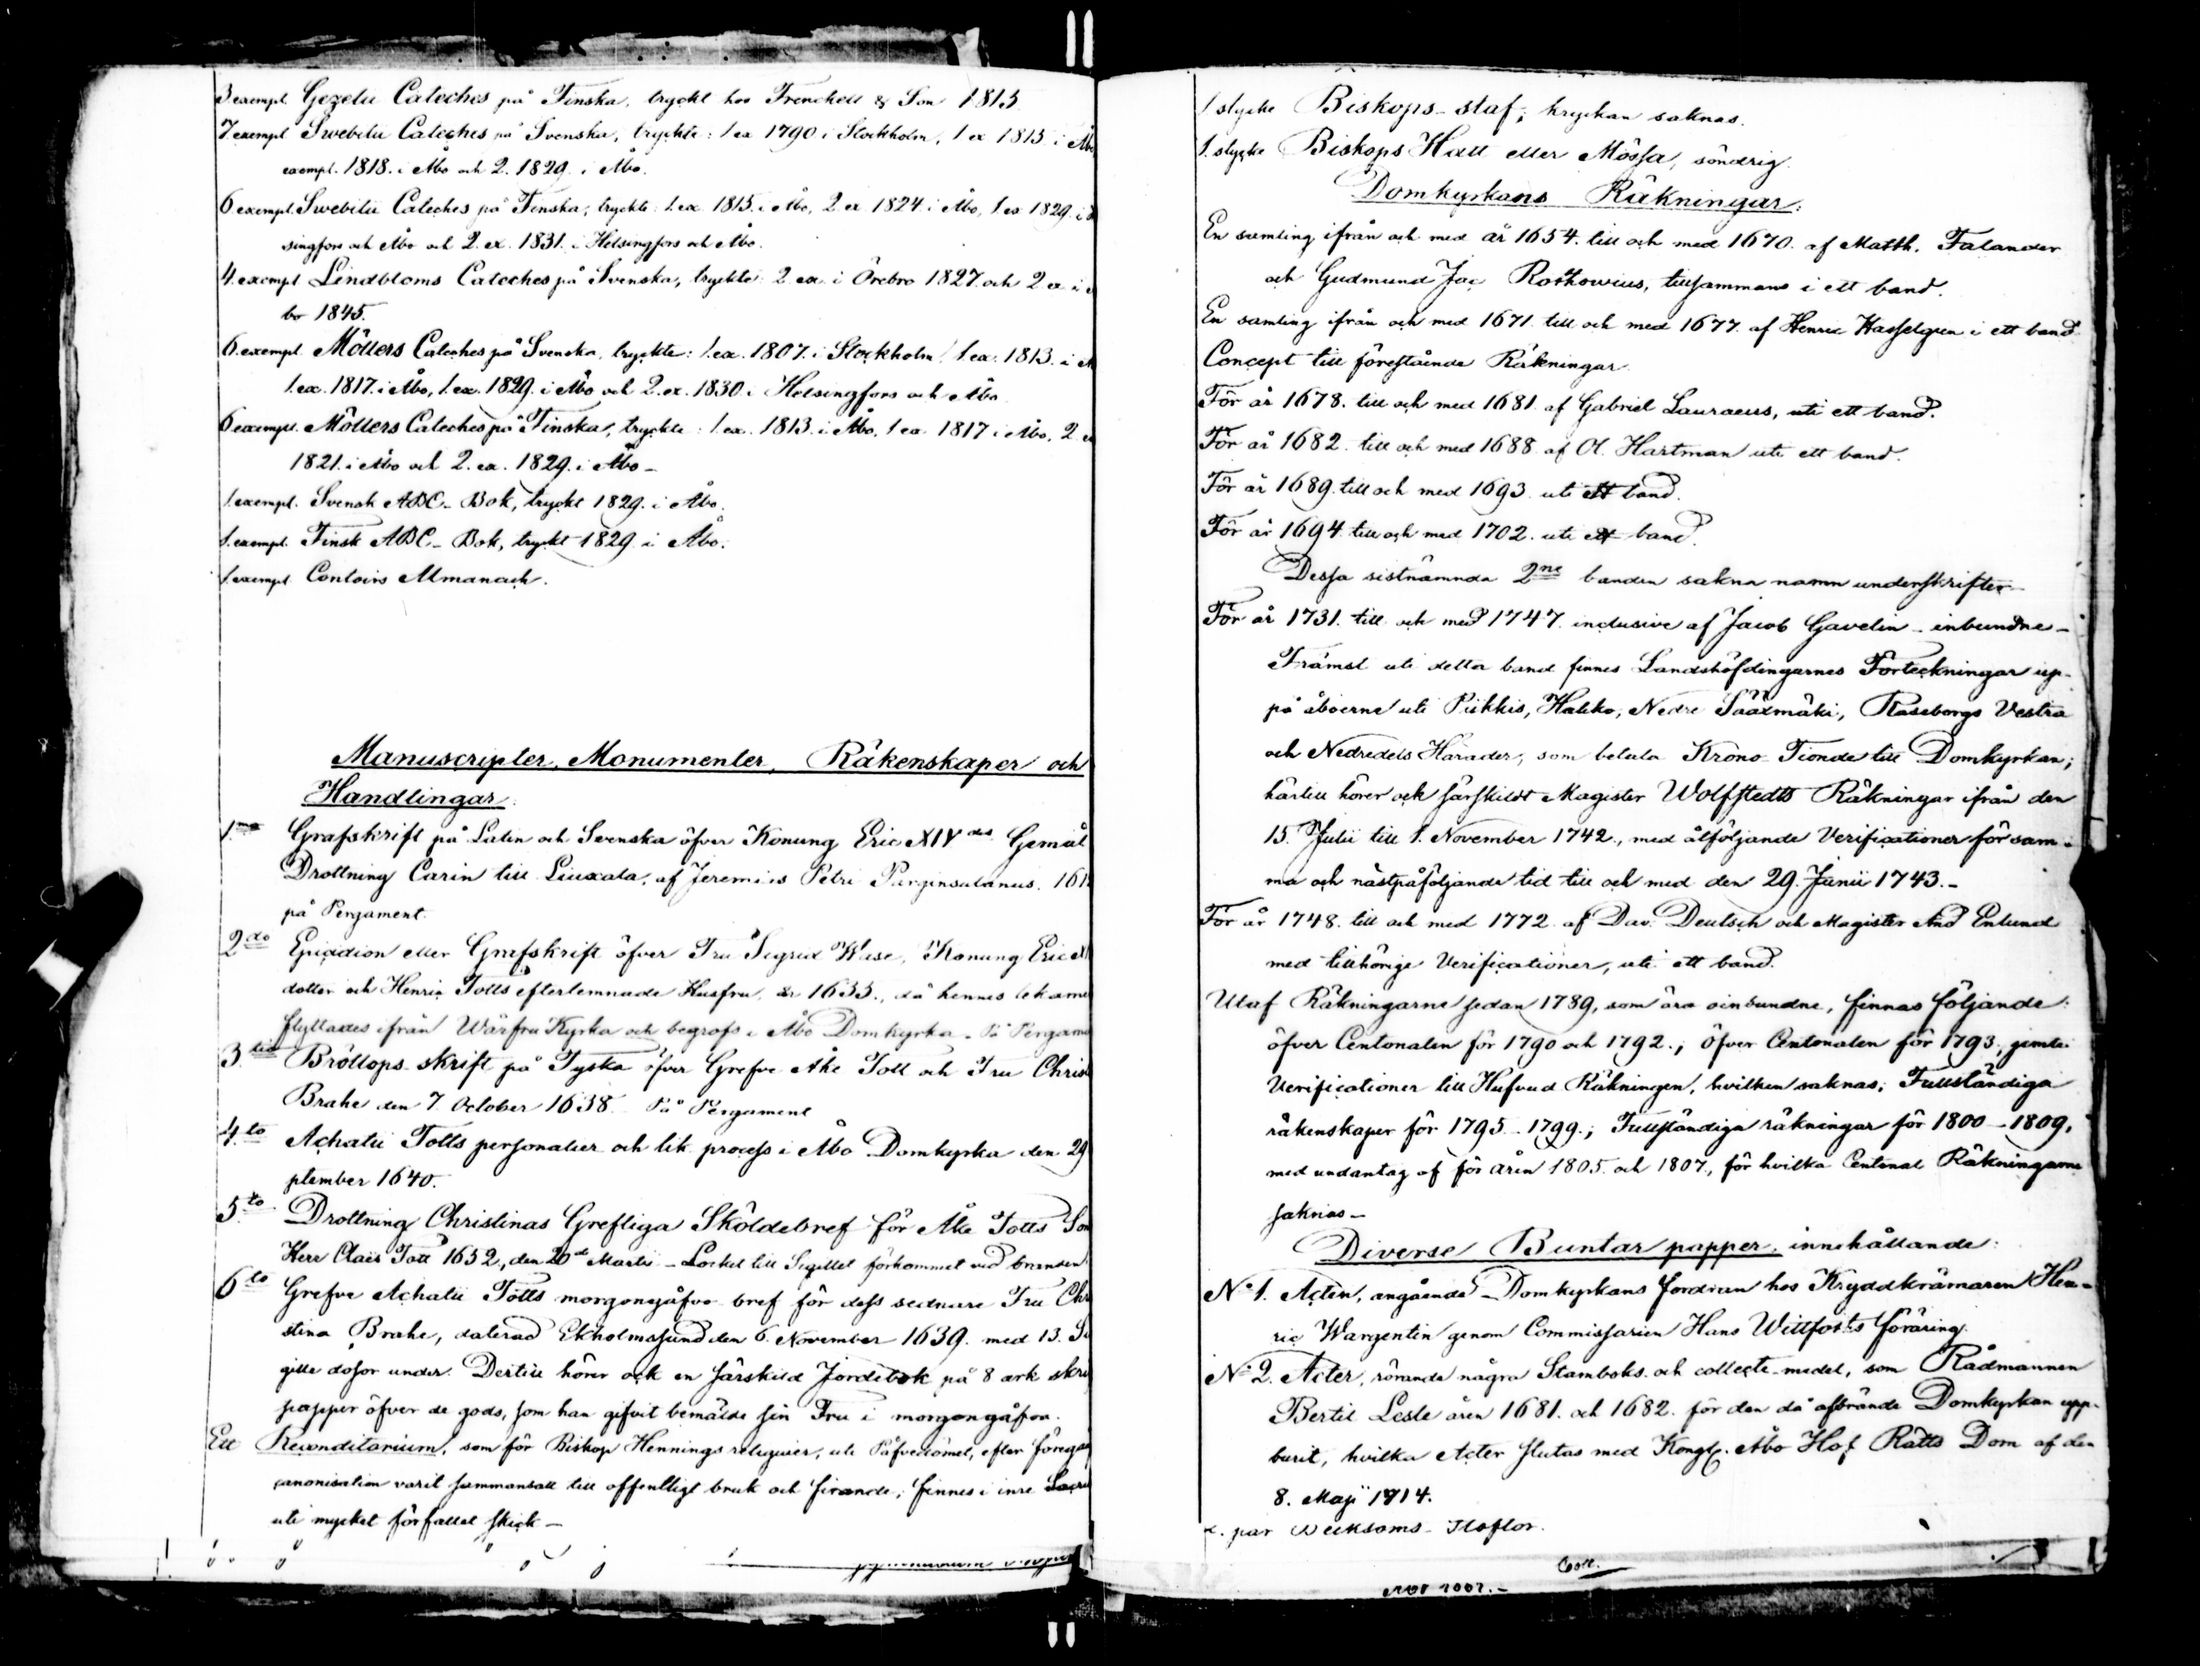 3 exempl. Gezelii Cateches på Finska, tryckt hos Frenckell & Son 1815
7 exempl Swebilii Cateches på Svenska, tryckte: 1 ex 1790 i Stockholm, 1 ex 1815 i Åbo
exempl. 1818. i Åbo och 2. 1829. i Åbo.
6 exempl. Swebilii Cateches på Finska, tryckte: 1. ex. 1815. i Åbo, 2 ex 1824. i Åbo, 1 ex 1829. i
singfors och Åbo och 2. ex. 1831. i Helsingfors och Åbo.
4. exempl Lindbloms Cateches på Svenska, tryckte: 2 ex. i Örebro 1827. och 2 ex i
bo 1845.
6. exempl. Möllers Cateches på Svenska, tryckte: 1. ex. 1807. i Stockholm, 1. ex. 1813. i
1. ex. 1817. i Åbo, 1. ex. 1829. i Åbo och 2. ex. 1830. i Helsingfors och Åbo
6 exempl. Möllers Cateches på Finska, tryckte: 1. ex. 1813. i Åbo, 1 ex. 1817 i Åbo, 2
1821. i Åbo och 2. ex. 1829. i Åbo –
1. exempl. Svensk ABC-Bok, tryckt 1829. i Åbo.
1. exempl. Finsk ABC-Bok, tryckt 1829 i Åbo.
1. exempl. Contoirs Almanach.
Manuscripter, Monumenter, Räkenskaper och
Handlingar.
1.mo Grafskrift på Latin och Svenska öfver Konung Eric XIV des Gemål
Drottning Carin till Liuxala, af Jeremias Petri Parginsulanus. 161
på Pergament.
2do Epicidion eller Grafskrift öfver Fru Sigrid Wase, Konung Eric
dotter och Henric Totts efterlemnade Husfru, år 1633., då hennes lekame
flyttades ifrån Wårfru Kyrka och begrofs i Åbo Domkyrka – På Pergame
3.tio Bröllops-skrift på Tyska öfver Grefve Åke Tott och Fru Christ
Brahe den 7 October 1638. På Pergament
4.to Achatii Totts personalier och lik-process i Åbo Domkyrka den 29
ptember 1640.
5.to Drottning Christinas Grefliga Sköldebref för Åke Totts Son
Herr Claës Tott 1652, den 20de Martii – Locket till Sigillet förkommet vid branden
6to Grefve Achatii Totts morgongåfvo-bref för dess sednare Fru Chri
stina Brahe, daterad Ekholmssund den 6. November 1639. med 13. Si
gille dosor under. Dertill hörer ock en särskild Jordebok på 8 ark skrif
papper öfver de gods, som han gifvit bemälde sin Fru i morgongåfva.
Ett Reconditorium, som för Biskop Hennings reliquier, uti Påfvedömet, efter föregå
canonisation varit sammansatt till offentligt bruk och firande; finnes i inre Sacri
uti mycket förfallet skick –
1 stycke Biskops-staf; kryckan saknas.
1. stycke Biskops Hatt eller Mössa, söndrig.
Domkyrkans Räkningar.
En samling ifrån och med år 1654. till och med 1670. af Matth. Falander
och Gudmund Jac Rothovius, tillsammans i ett band.
En samling ifrån och med 1671. till och med 1677. af Henric Hasselgren i ett band
Concept till förestående Räkningar
För år 1678. till och med 1681. af Gabriel Lauraeus, uti ett band.
För år 1682. till och med 1688. af Ol. Hartman uti ett band.
För år 1689. till och med 1693. uti ett band.
För år 1694. till och med 1702. uti ett band.
Dessa sistnämnda 2ne banden sakna namn underskrifter
För år 1731. till och med 1747. inclusive af Jacob Gavelin – inbundne –
Främst uti detta band finnes Landshöfdingarnes Förteckningar up-
på åboerne uti Pikkis, Haliko, Nedre Sääxmäki, Raseborgs Vestra
och Nedredels Härader, som betala Krono Tionde till Domkyrkan;
härtill hörer ock särskildt Magister Wolfstedts Räkningar ifrån den
15. Julii till 1. November 1742., med åtföljande Verificationer för sam-
ma och nästpåföljande tid till och med den 29. Junii 1743. –
För år 1748. till och med 1772. af Dav. Deutsch och Magister And Enlund
med tillhörige Verificationer, uti ett band.
Utaf Räkningarne sedan 1789, som äro oinbundne, finnas följande:
öfver Centonalen för 1790 och 1792.; Öfver Centonalen för 1793, jemte
Verificationer till Hufvud Räkningen, hvilken saknas; Fullständiga
räkenskaper för 1795–1799.; Fullständiga räkningar för 1800–1809,
med undantag af för åren 1805. och 1807, för hvilka Centonal Räkningarne
saknas –
Diverse Buntar papper, innehållande:
No 1. Acten, angående Domkyrkans fordran hos Kryddkrämaren Hen-
ric Wargentin genom Commissarien Hans Wittfooths föräring.
No 2. Acter, rörande några Stamboks- och collecte-medel, som Rådmannen
Bertil Lesle åren 1681. och 1682. för den då afbrände Domkyrkan upp-
burit, hvilka Acter slutas med Kongl. Åbo Hof Rätts Dom af den
8. Maji 1714.